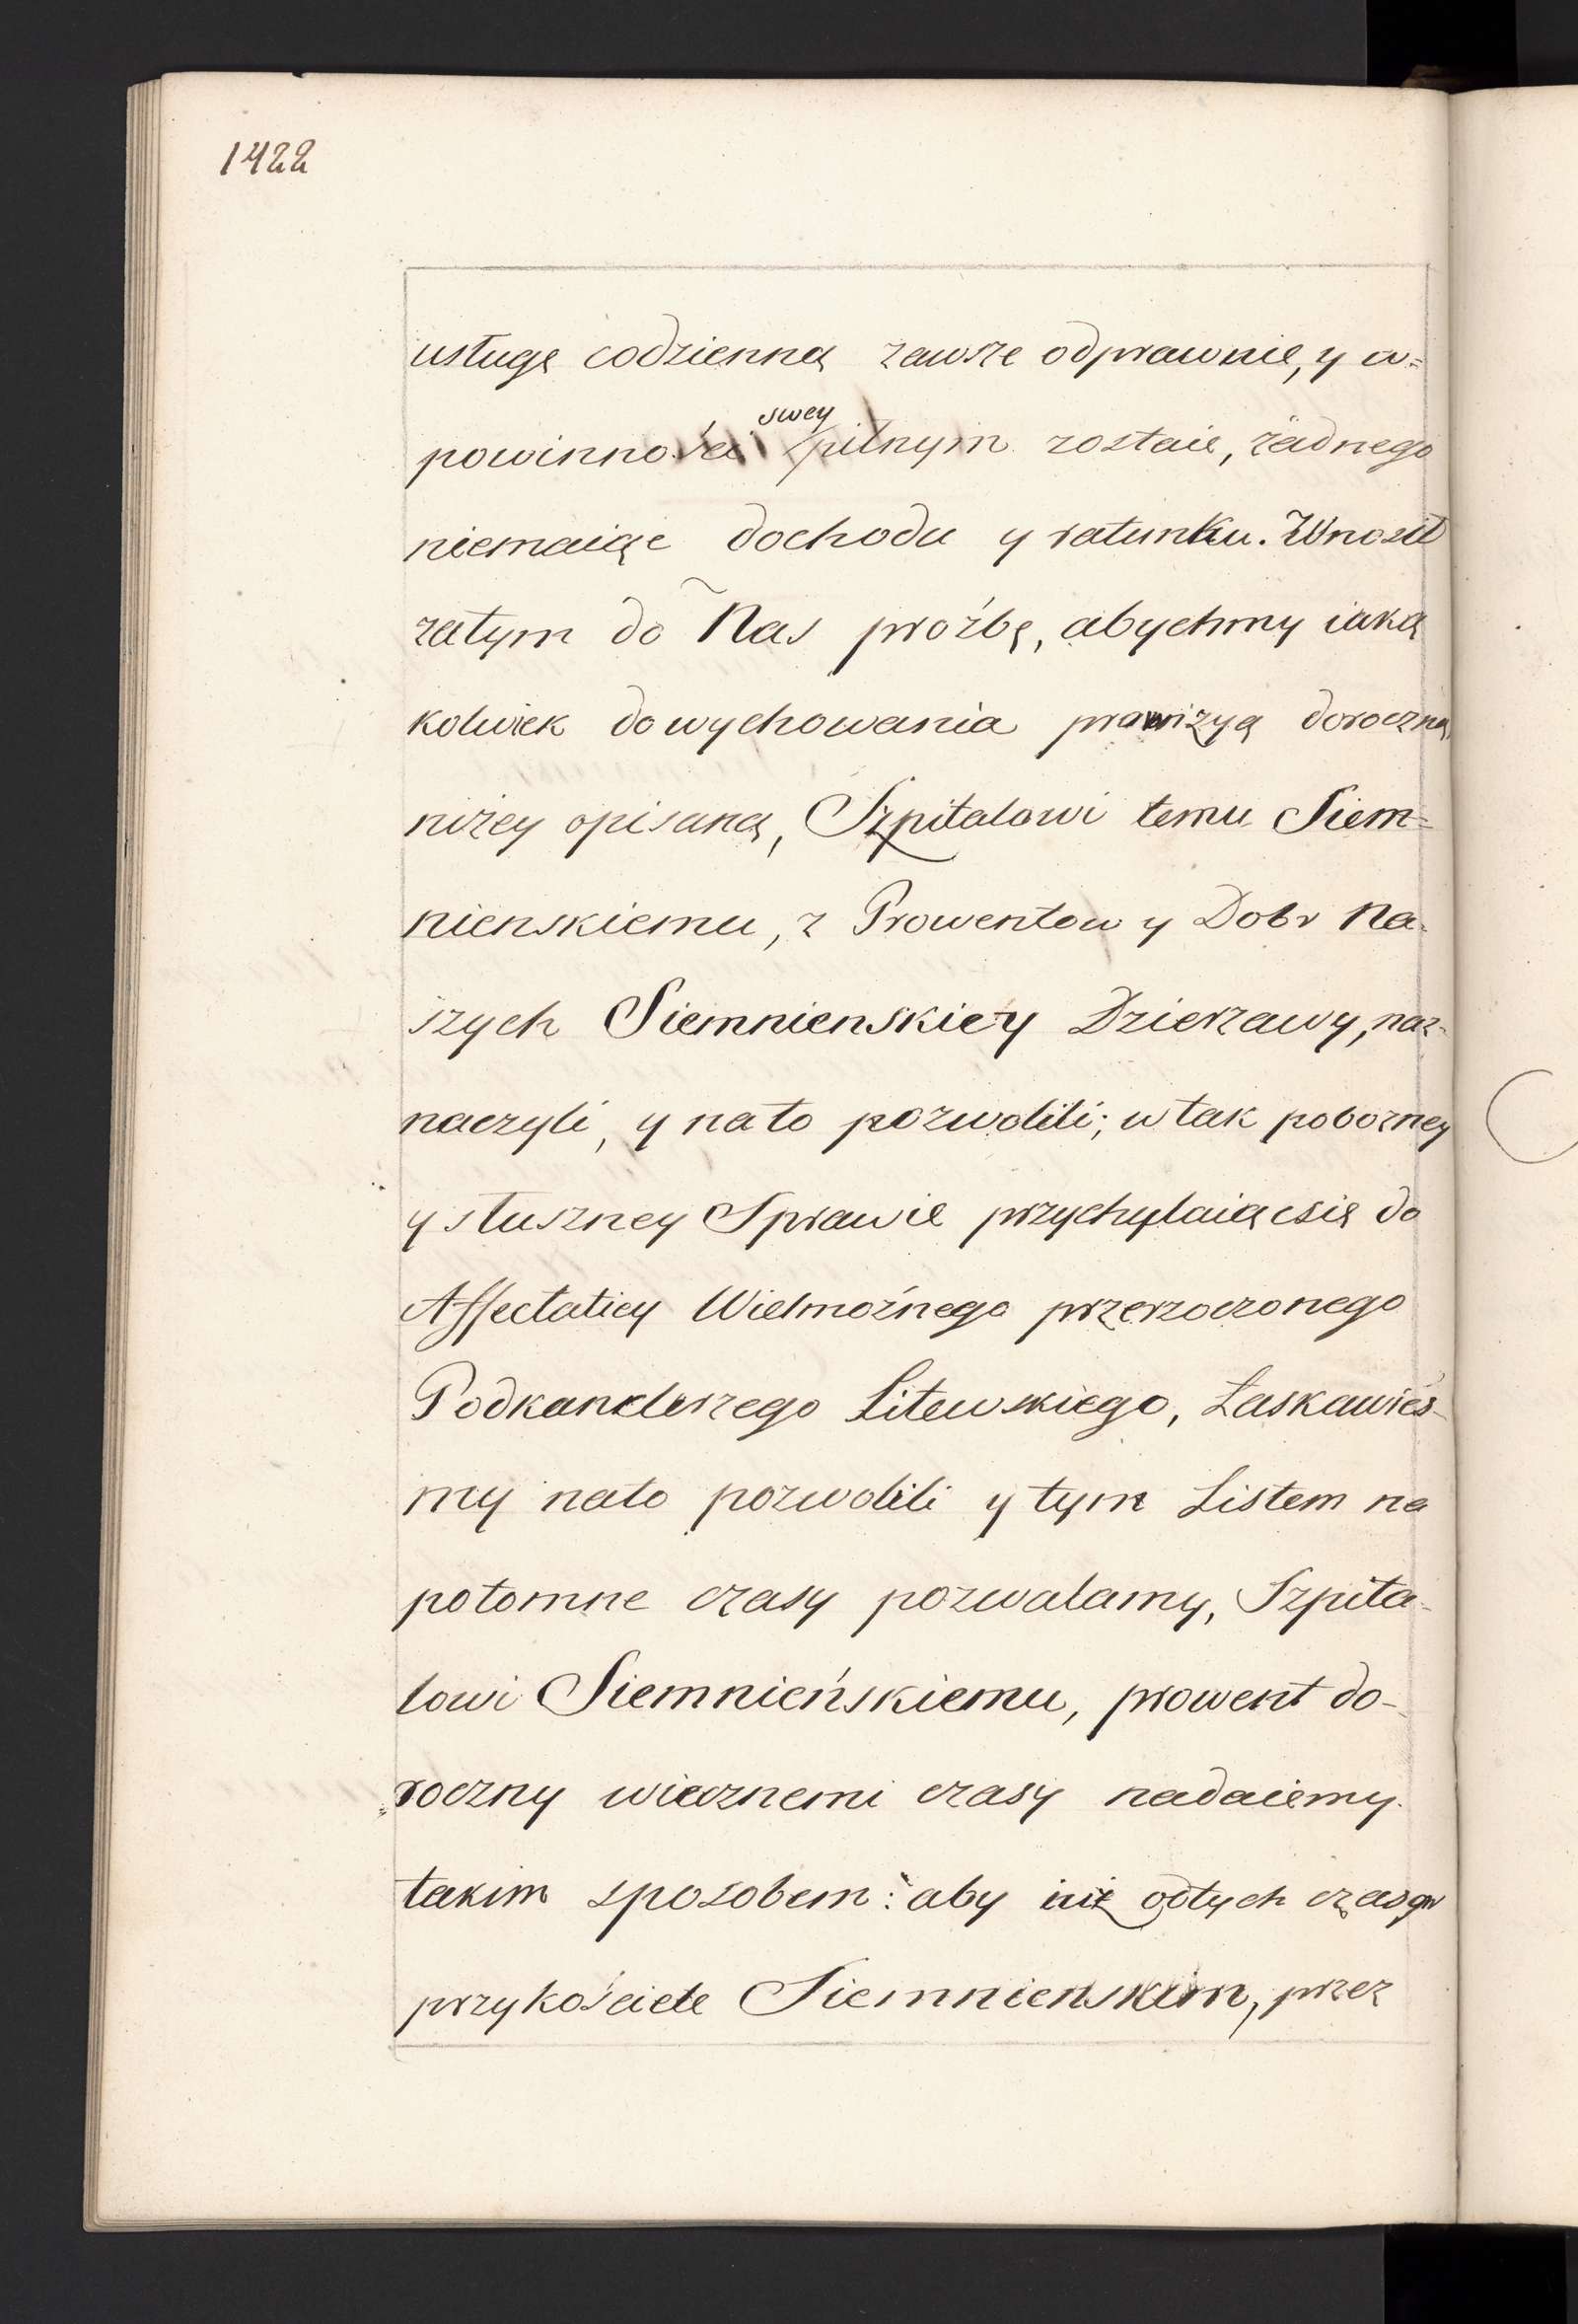 1422
usługę codzienną zawsze odprawuie, y w=
powinności swey pilnym zostaie, żadnego
niemaiąc dochodu y ratunku. Wnosił
zatym do Nas proźbę, abychmy iaką
kolwiek do wychowania prowizyą doroczną,
niżey opisaną, Szpitalowi temu Siem=
nienskiemu, z Prowentow y Dobr Na-
szych Siemnienskiey Dzierzawy, naz-
naczyli, y na to pozwolili; w tak pobozney
y słuszney Sprawie przychylaiącsię do
Affectatiey Wielmożnego przerzoczonego
Podkanclerzego Litewskiego, Łaskawieś-
my nato pozwolili y tym Listem na
potomne czasy pozwalamy, Szpita-
lowi Siemnieńskiemu, prowent do-
roczny wiecznemi czasy nadaiemy
takim sposobem: aby iuż odtych czasow
przykościele Siemnienskim, przez